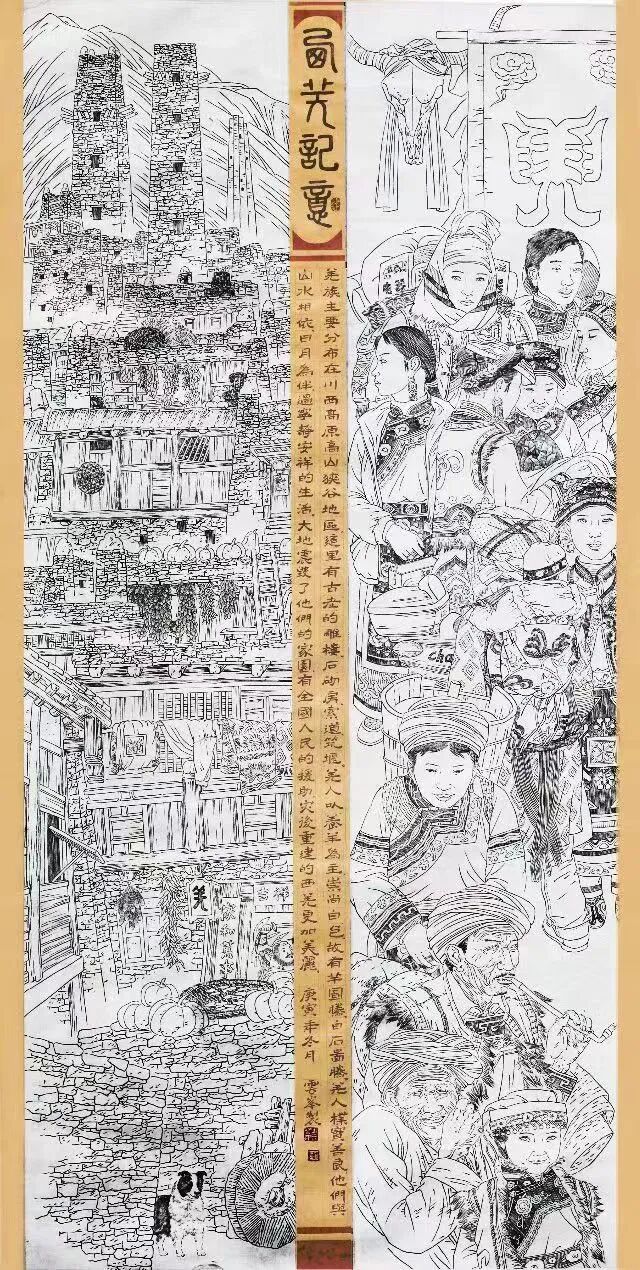 西羌記意
羌族主要分布在川西高原高山狹谷地區這里有古老的雕樓石砌房索道筑堰羌人以養羊為主崇尚白色故有羊圖騰白石圖騰羌人樸實善良他們與
山水相依日月為伴過寧靜安祥的生活大地震毀了他們的家園有全國人民的援助灾後重建的西羌更加美麗 庚寅年冬月 雲峯製
羌
cha